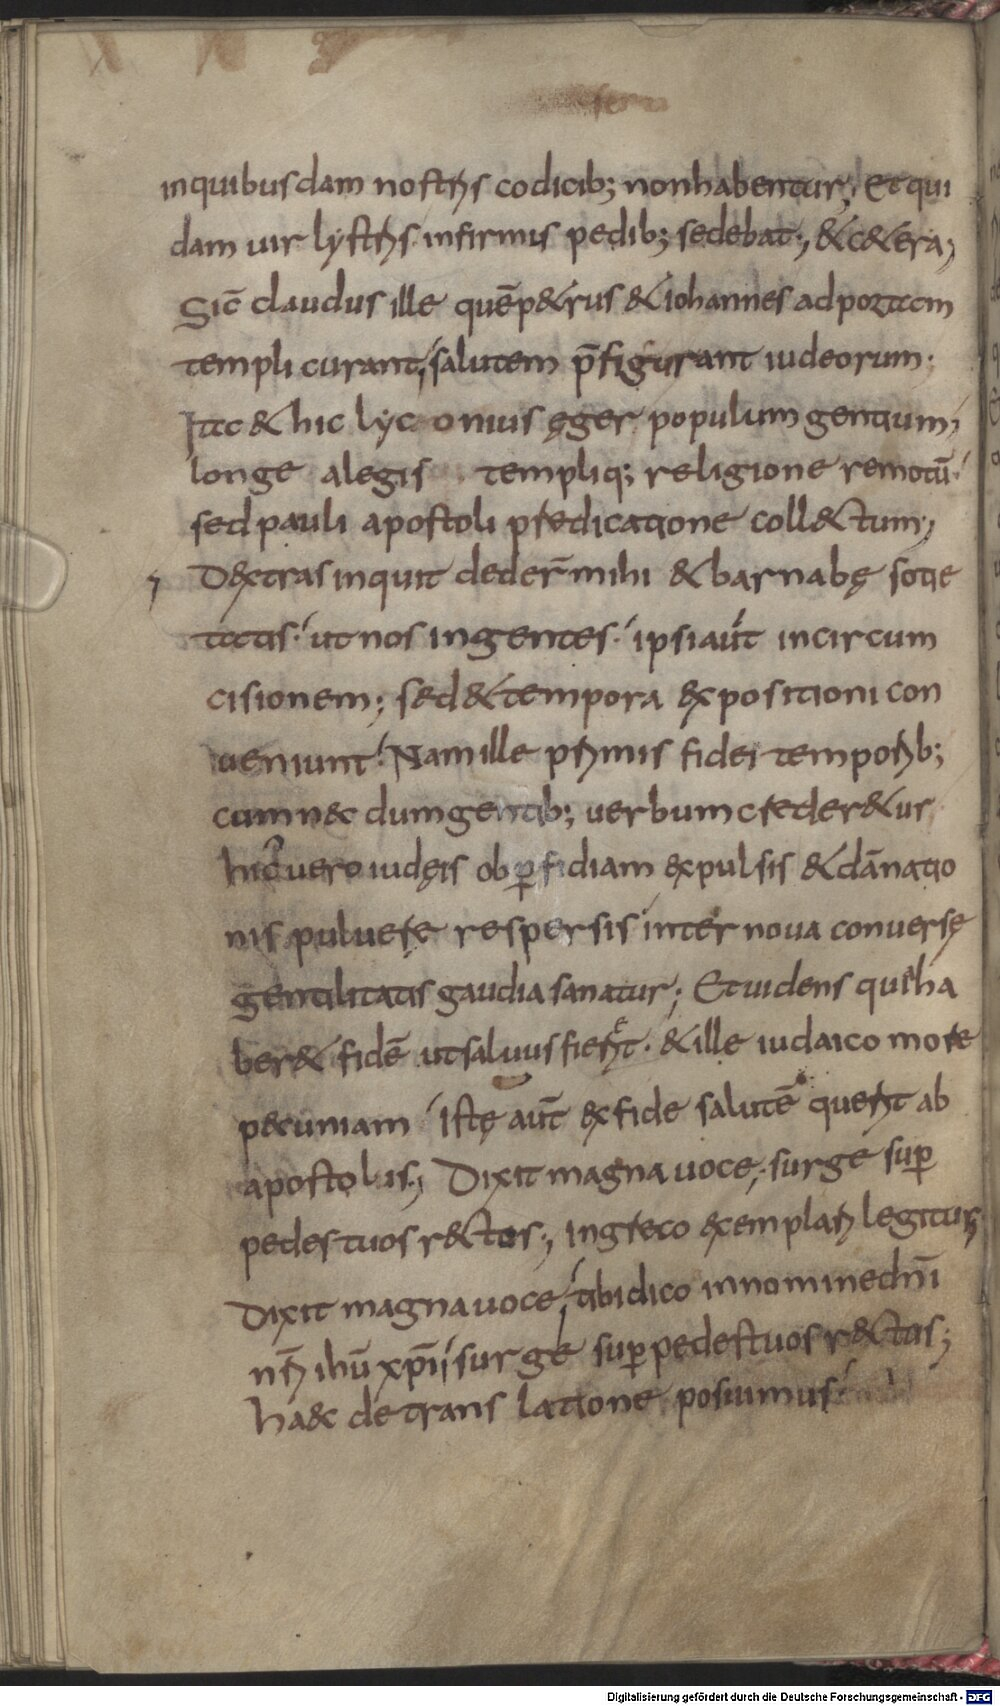 inquibusdam nostris codicib; nonhabentur; Et qui
dam uir lystris infirmis pedib; sedebat; & c&era;
Sic̄ claudus ille quēp&rus & iohannes adportam
templi curant; salutem p̄figurant iudeorum;
Ita & hic lycaonius ęger populum gentium;
longe alegis templiq; religione remotū
sed pauli apostoli predicatione coll&tum;
D&xtras inquit deder̄ mihi & barnabę sotie
tatis· ut nos ingentes· ipsi aūt incircum
cisionem; sed & tempora expositioni con
ueniunt· Nam ille primis fidei temporib;
cum n&c dum gentib; uerbum creder&ur
hic uero iudęis ob ꝑfidiam expulsis & dānatio
nis puluere respersis inter noua conuersę
gentilitatis gaudia sanatur; Et uidens quiha
ber& fidē ut saluus fier&t· & ille iudaico more
pecuniam istę aūt ex fide salutē querit ab
apostolis; Dixit magna uoce; surge suꝑ
pedes tuos r&ctos; in greco exemplari legitur;
Dixit magna uoce; tibi dico in nomine dn̄i
nr̄i ihū xp̄i; surge suꝑ pedes tuos r&ctus;
ha&c de trans latione posiumus
Digitalisierung gefördert durch die Deutsche Forschungsgemeinschaft - DFG